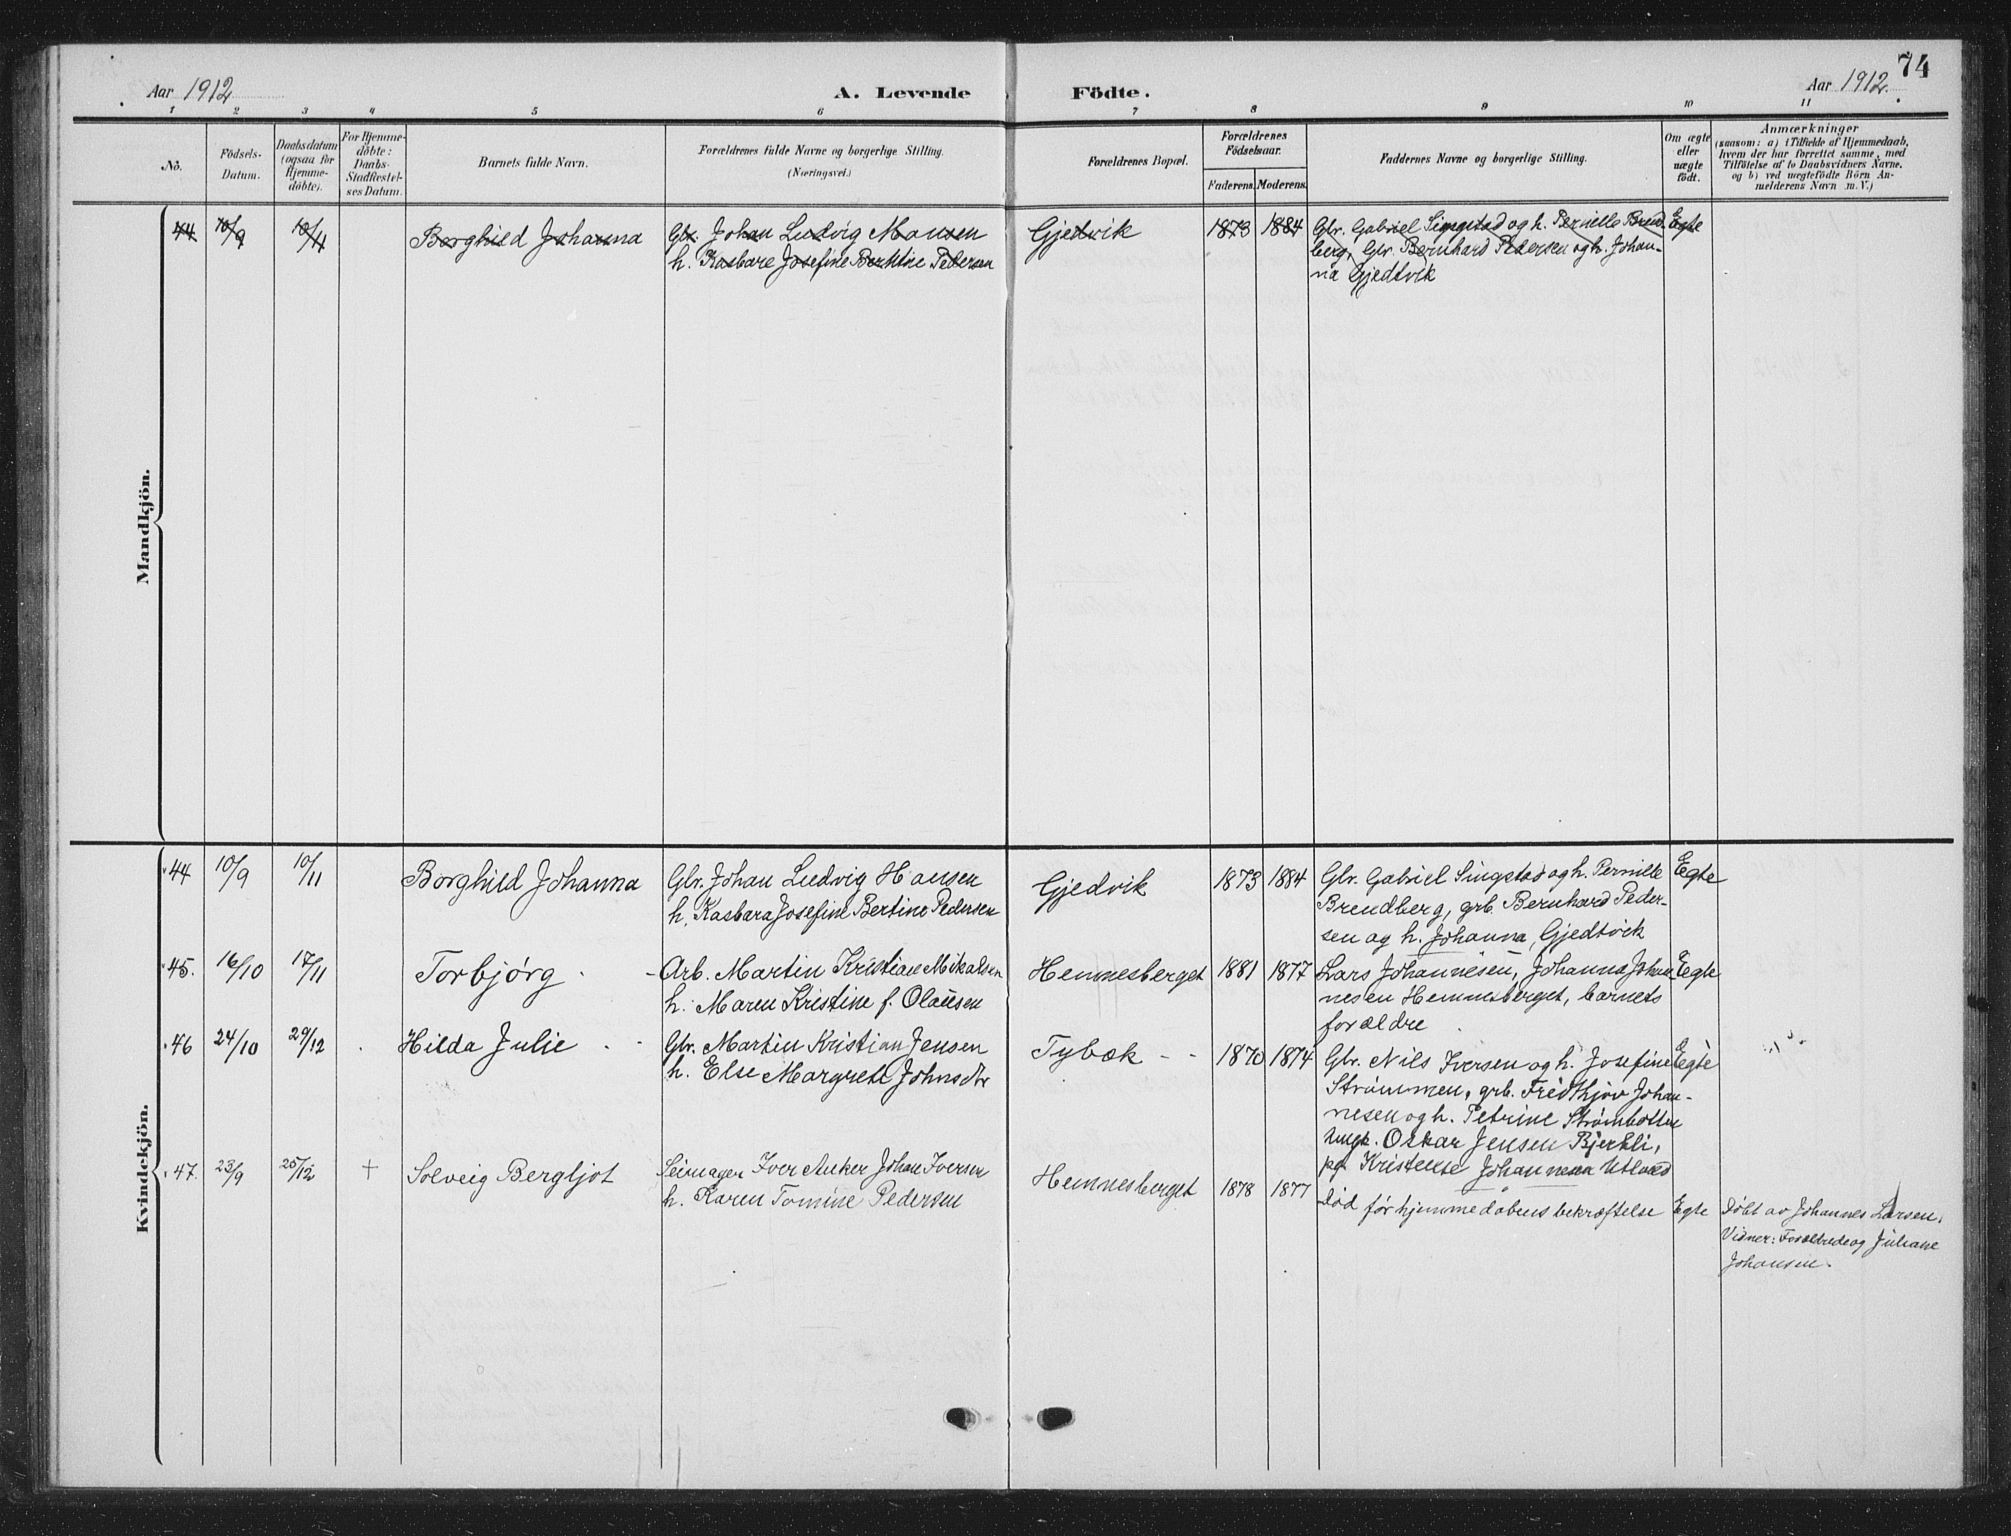 74
Aar 1912 A. Levende Födte. Aar 1912
1 2 3 4 5 6 7 8 9 10 11
No.
Födsels-
Datum.
Daabsdatum
(ogsaa for
Hjemme-
döbte).
For Hjemme-
döbte:
Daabs-
Stadfæstel-
ses Datum.
Barnets fulde Navn.
Forældrenes fulde Navne og borgerlige Stilling.
(Næringsvei.)
Forældrenes Bopæl.
Forældrenes
Födselsaar.
Faderens. Moderens.
Faddernes Navne og borgerlige Stilling.
Om ægte
eller
uægte
födt.
Anmærkninger
(saasom: a) i Tilfælde af Hjemmedaab,
hvem der har forrettet samme, med
Tilföielse af to Daabsvidners Navne.
og b) ved uægtefödte Börn An-
melderens Navn m. V.)
Mandkjön.
44 10/9 10/11 Borghild Johanna
Gbr. Johan Ludvig Hansen
h. Kasbare Josefine Berntine Pedersen
Gjedvik 1873 1884
Gbr. Gabriel Singstad og h. Pernille Brend
berg, Gbr. Bernhard Pedersen og h. Johan-
na Gjedtvik
Egte
Kvindekjön.
44 10/9 10/11 Borghild Johanna
Gbr. Johan Ludvig Hansen
h. Kasbara Josefine Bertine Pedersen
Gjedvik 1873 1884
Gbr. Gabriel Singstad og h. Pernille
Brendberg, grb. Bernhard Peder-
sen og h. Johanna, Gjedtvik
Egte
45. 16/10 17/11 Torbjørg
Arb. Martin Kristian Mikalsen
h. Maren Kristine f. Olaüsen
Hemnesberget 1881 1877
Lars Johannesen, Johanna Johan
nesen Hemnesberget, barnets
forældre
Egte
46 24/10 29/12 Hilda Julie
Gbr. Martin Kristian Jensen
h. Else Margrete Johnsdtr
Tybæk 1870 1874
Gbr. Nils Iversen og h. Josefine
Strømmen, grb. Fredthjov Johan-
nesen og h. Petrine Strømbotten
Ungk. Oskar Jensen Bjerkli,
pg. Johannesen
Egte
47. 23/9 25/12 † Solveig Bergljot
Iver Anker Johan Iversen
h. Karen Tomine Pedersen
Hemnesberget 1878 1877
Død før hjemmedabens bekræftelse
Egte
Døbt av Johannes Larsen.
Vidner: Forældrede og Juliane
Johansen.